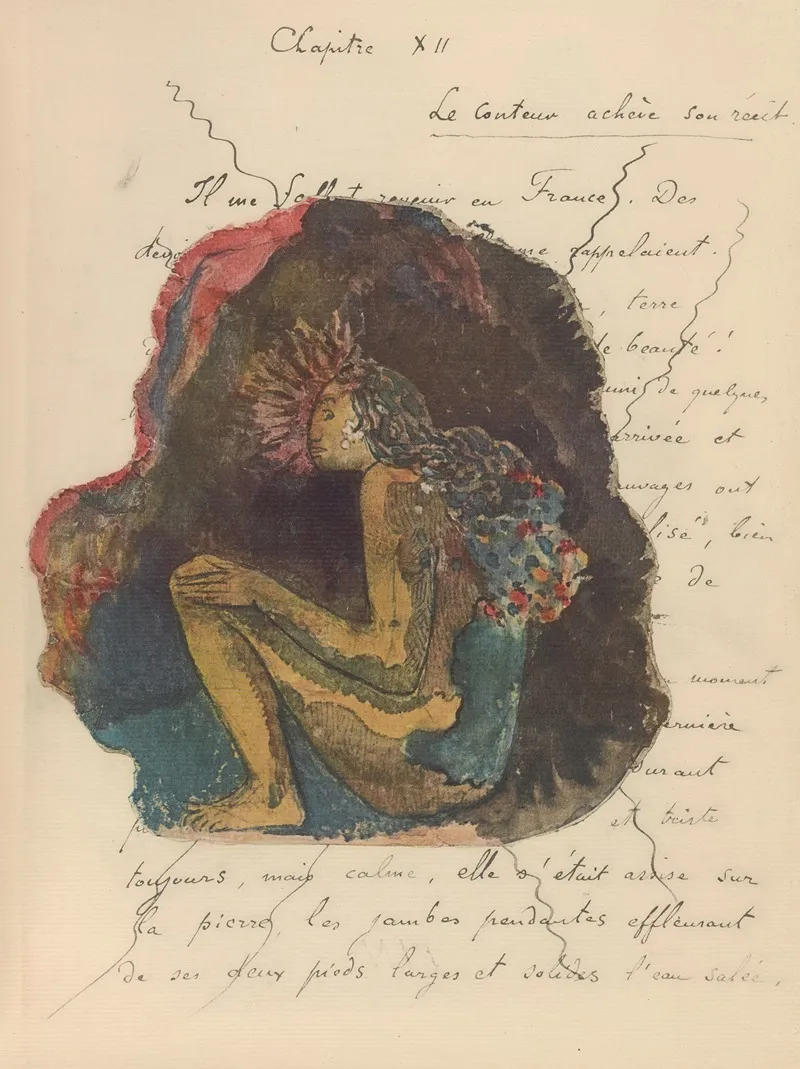 Chapitre XII
Le conteur achève son récit.
Il me fallut revenir en France. Des
me rappelaient.
, terre
de beauté !
muni de quelques
arrivée et
sauvages ont
lisé, bien
de
moment
dernière
Durant
et triste
toujours, mais calme, elle s'était assise sur
la pierre, les jambes pendantes effleurant
de ses deux pieds larges et solides l'eau salée,